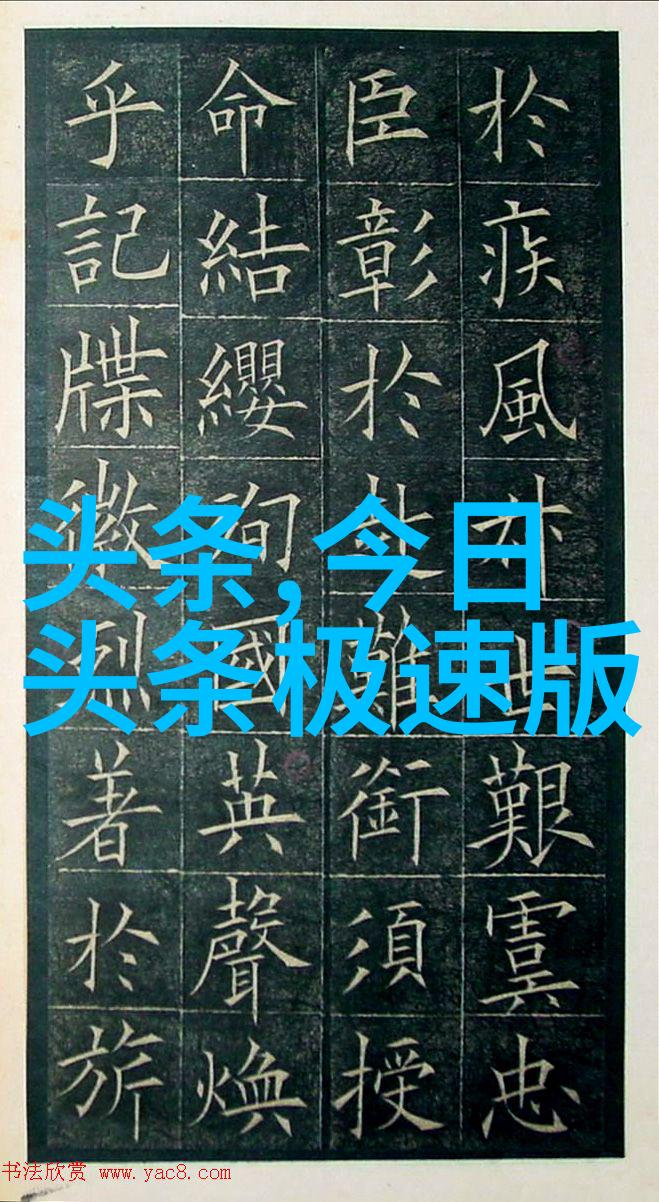 於疾風世艱虞忠
臣彰於赴難銜須授
命結纓殉國英聲煥
乎記牒徽烈著於旂
头条,今日
头条极速版
书法欣赏 www.yac8.com